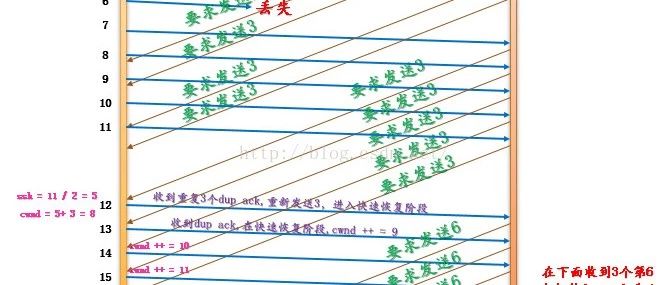 6
丢失
要求发送3
7
要求发送3
8
要求发送3
9
要求发送3
要求发送3
10
要求发送3
要求发送3
11
要求发送3
http://blog.csd
要求发送3
ssh = 11 / 2 = 5
cwnd = 5+ 3 = 8
收到重复3个dup ack,重新发送3, 进入快速恢复阶段
12
收到dup ack,在快速恢复阶段,cwnd ++ = 9
13
要求发送6
cwnd ++ = 10
14
要求发送6
cwnd ++ = 11
15
要求发送6
在下面收到3个第6